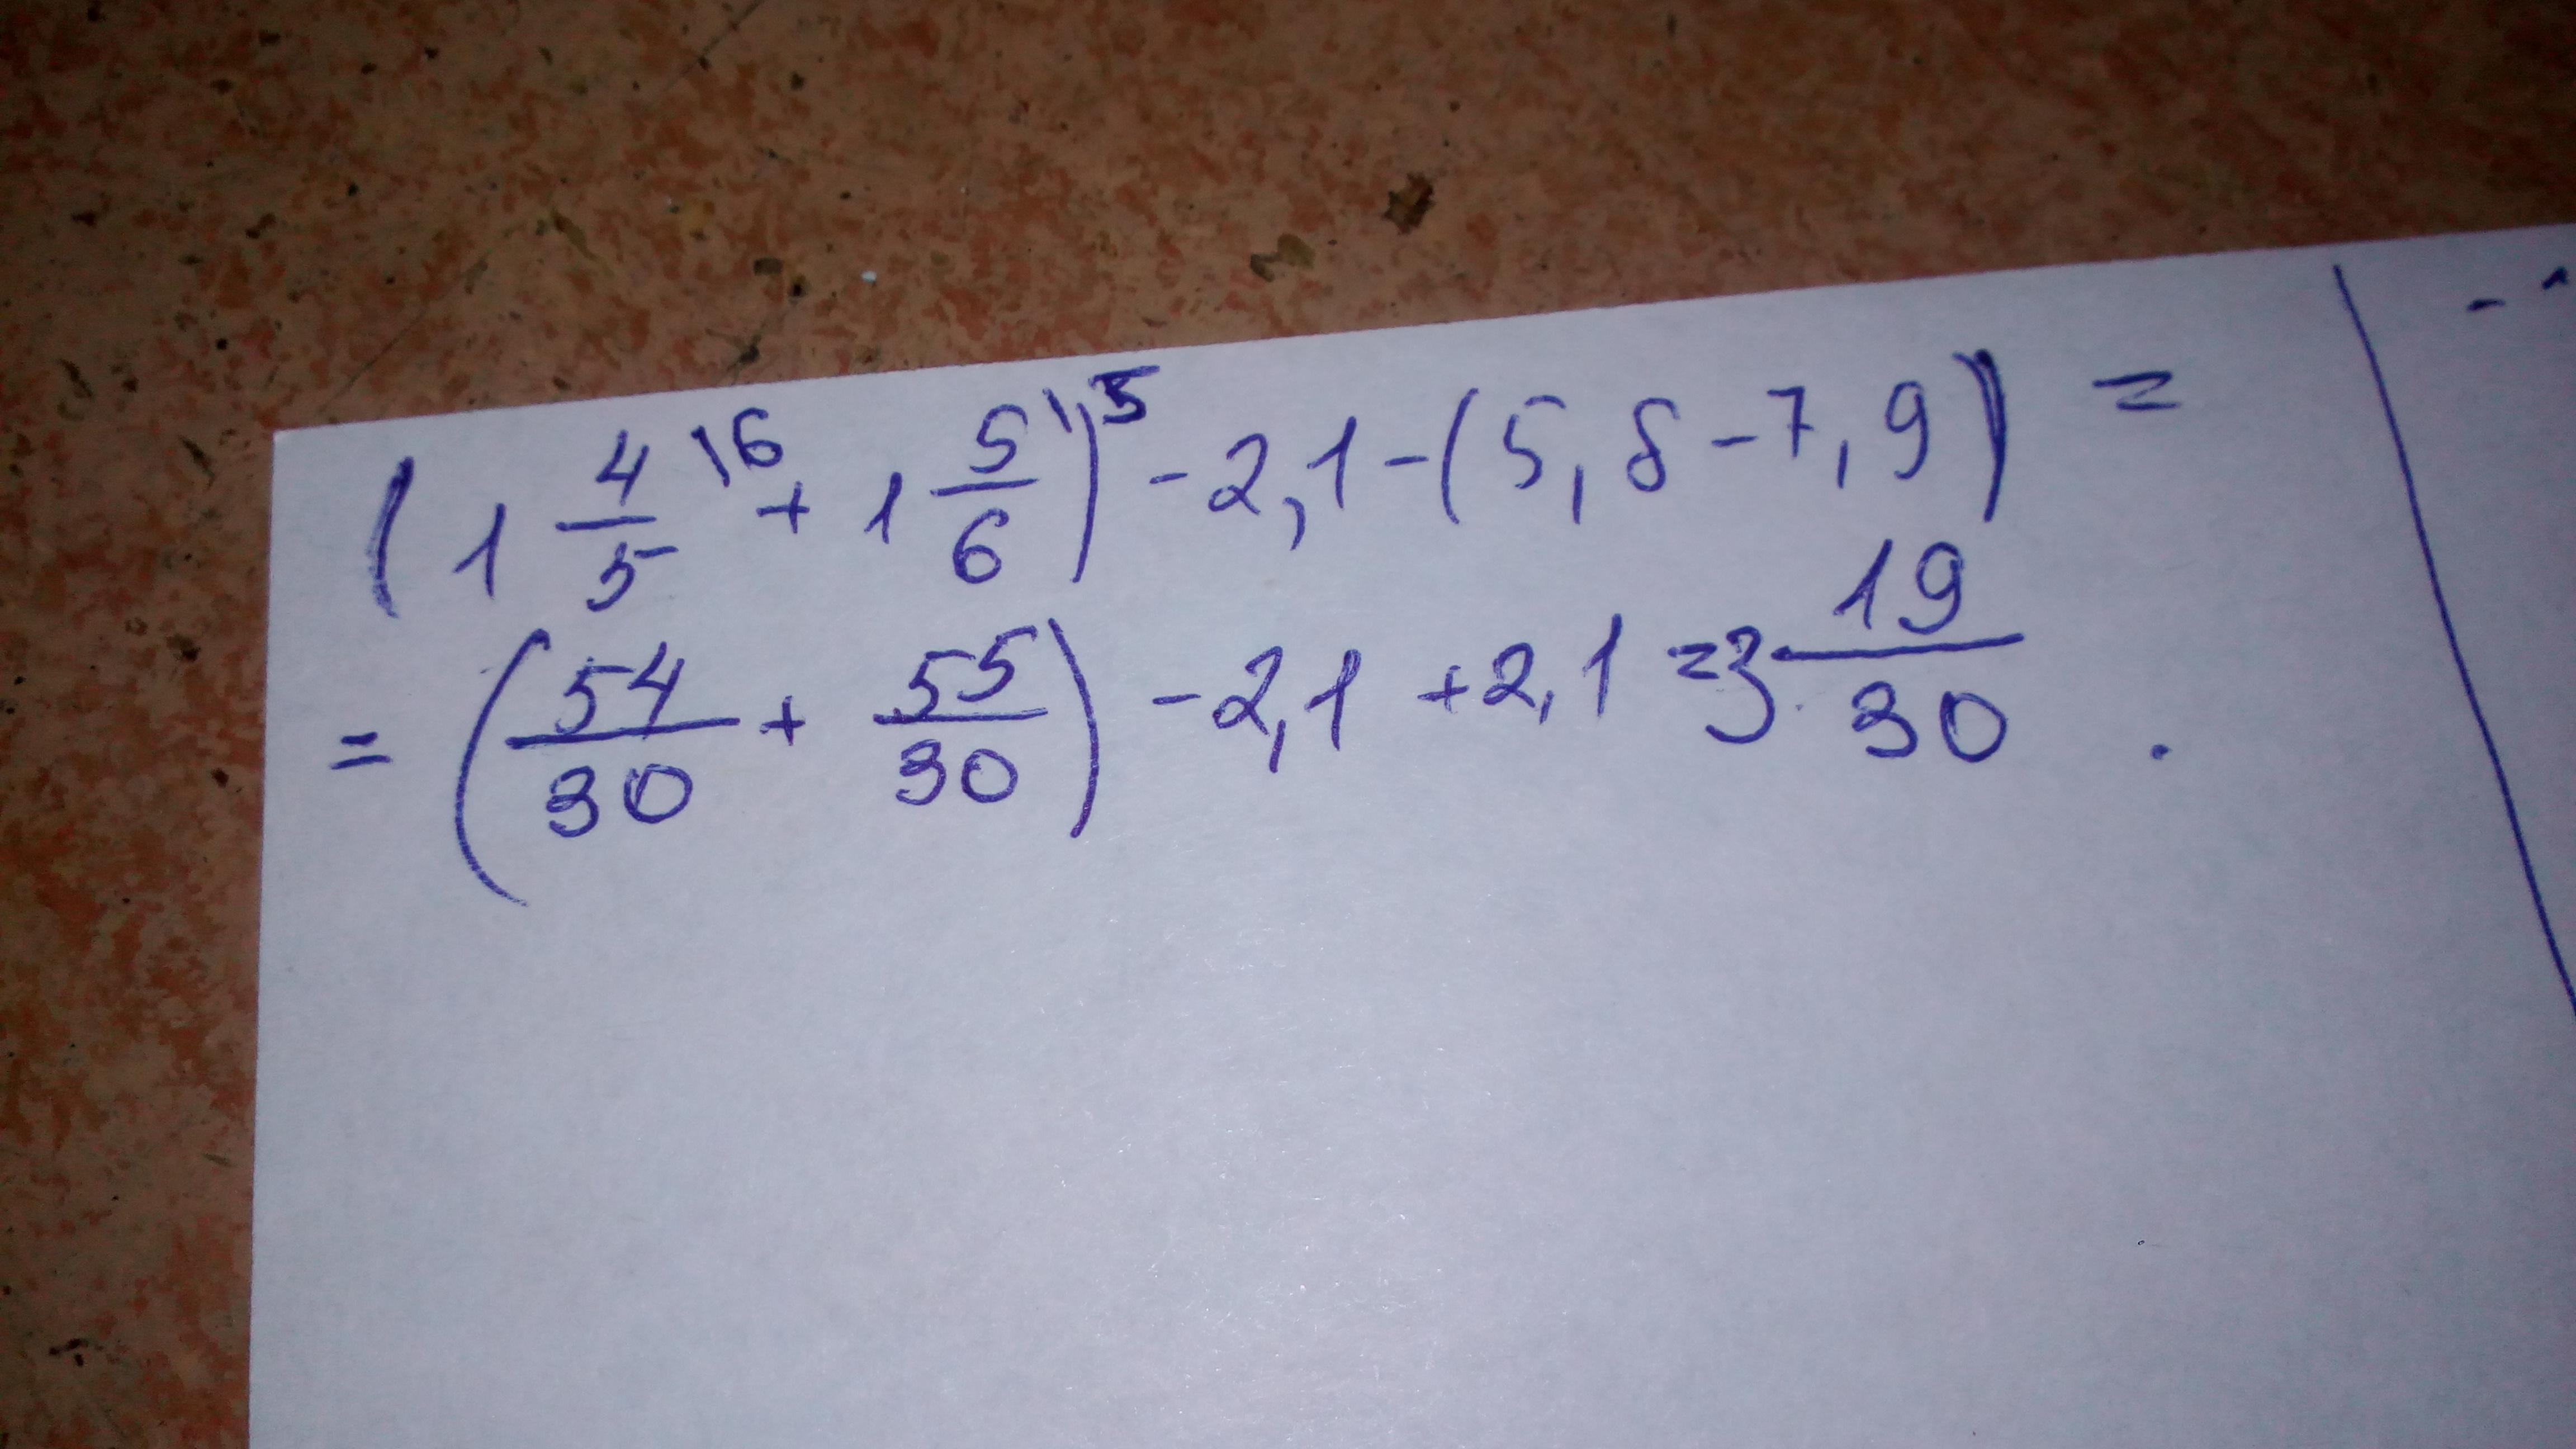 (1 4/5 \6 + 1 5/6 \5) - 2,1 - (5,8 - 7,9) =
= (54/30 + 55/30) - 2,1 + 2,1 = 3 19/30 .